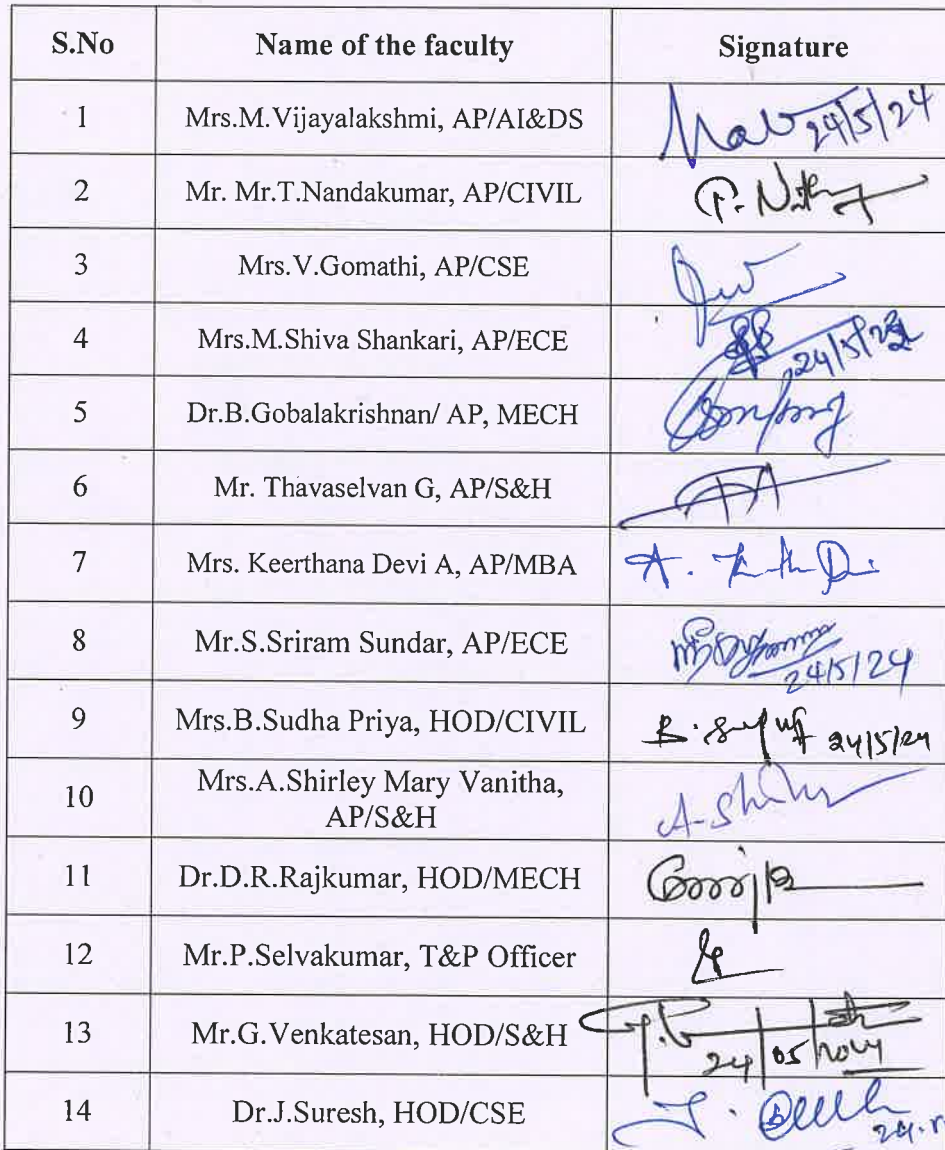 S.No Name of the faculty Signature
1 Mrs.M.Vijayalakshmi, AP/AI&DS 24/5/24
2 Mr. Mr.T.Nandakumar, AP/CIVIL
3 Mrs.V.Gomathi, AP/CSE
4 Mrs.M.Shiva Shankari, AP/ECE
5 Dr.B.Gobalakrishnan/ AP, MECH
6 Mr. Thavaselvan G, AP/S&H
7 Mrs. Keerthana Devi A, AP/MBA
8 Mr.S.Sriram Sundar, AP/ECE 24/5/24
9 Mrs.B.Sudha Priya, HOD/CIVIL 24/5/24
10 Mrs.A.Shirley Mary Vanitha,
AP/S&H
11 Dr.D.R.Rajkumar, HOD/MECH
12 Mr.P.Selvakumar, T&P Officer
13 Mr.G.Venkatesan, HOD/S&H 24/05/2024
14 Dr.J.Suresh, HOD/CSE